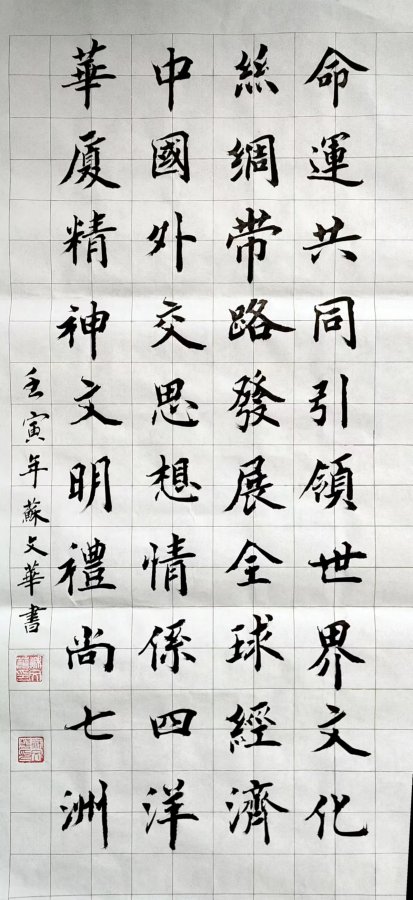 命運共同引領世界文化
絲綢带路發展全球經濟
中國外交思想情係四洋
華厦精神文明禮尚七洲
壬寅年蘇文華書